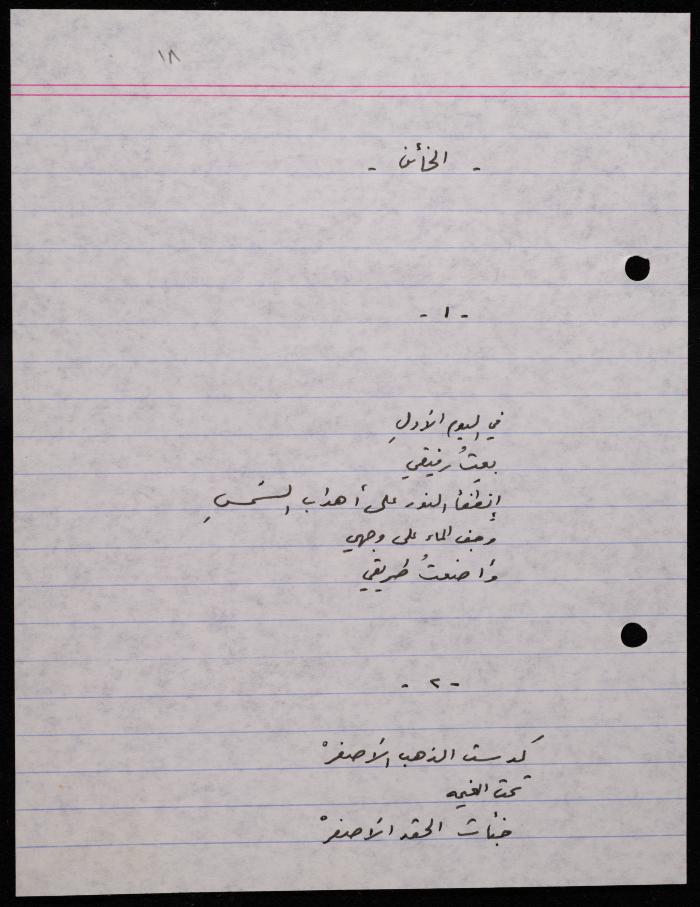 ١٨
- الخائن -
- ١ -
في اليوم الأولِ
بعتُ رفيقي
إنطفأ النور على أهداب الشمسِ
وجف الماء على وجهي
وأضعتُ طريقي
- ٢ -
كدست الذهب الأصفرْ
تحت الغيمه
خبأت الحقد الأصفرْ